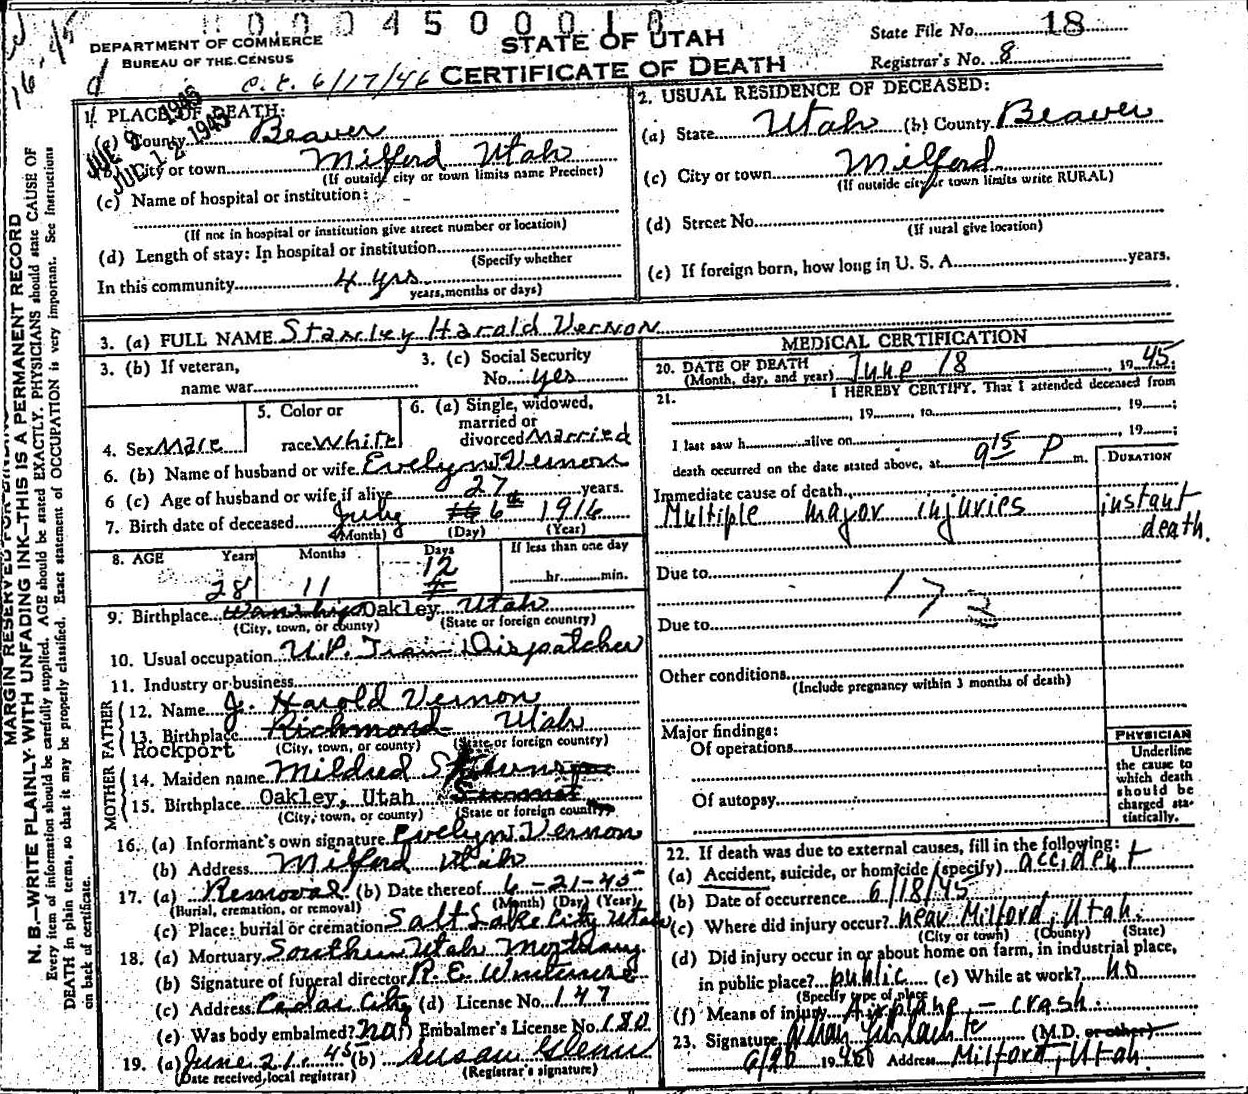 0004500018
DEPARTMENT OF COMMERCE
BUREAU OF THE CENSUS
STATE OF UTAH
CERTIFICATE OF DEATH
State File No. 18
Registrar's No. 8
6/17/46
MARGIN RESERVED FOR BINDING
N. B.—WRITE PLAINLY WITH UNFADING INK—THIS IS A PERMANENT RECORD
Every item of information should be carefully supplied. AGE should be stated EXACTLY. PHYSICIANS should state CAUSE OF
DEATH in plain terms, so that it may be properly classified. Exact statement of OCCUPATION is very important. See Instructions
on back of certificate.
1. PLACE OF DEATH:
(a) County Beaver
(b) City or town Milford Utah
(If outside city or town limits name Precinct)
(c) Name of hospital or institution: -
(If not in hospital or institution give street number or location)
(d) Length of stay: In hospital or institution
(Specify whether
In this community 4 yrs.
years, months or days)
2. USUAL RESIDENCE OF DECEASED:
(a) State Utah (b) County Beaver
(c) City or town Milford
(If outside city or town limits write RURAL)
(d) Street No.
(If rural give location)
(e) If foreign born, how long in U. S. A. years.
3. (a) FULL NAME Stanley Harald Vernon
3. (b) If veteran,
name war
3. (c) Social Security
No. yes
4. Sex Male
5. Color or
race White
6. (a) Single, widowed,
married or
divorced Married
6. (b) Name of husband or wife Evelyn Vernon
6 (c) Age of husband or wife if alive 27 years.
7. Birth date of deceased July 6th 1916
(Month) (Day) (Year)
8. AGE Years Months Days If less than one day
28 11 12 hr. min.
9. Birthplace Oakley Utah
(City, town, or county) (State or foreign country)
10. Usual occupation U.P. Train Dispatcher
11. Industry or business
FATHER
12. Name J. Harold Vernon
13. Birthplace Richmond Utah
Rockport (City, town, or county) (State or foreign country)
MOTHER
14. Maiden name Mildred
15. Birthplace Oakley, Utah Summit
(City, town, or county) (State or foreign country)
16. (a) Informant's own signature Evelyn Vernon
(b) Address Milford Utah
17. (a) Removal (b) Date thereof 6-21-45
(Burial, cremation, or removal) (Month) (Day) (Year)
(c) Place: burial or cremation Salt Lake City Utah
18. (a) Mortuary Southern Utah Mortuary
(b) Signature of funeral director
(c) Address Cedar City (d) License No. 147
(e) Was body embalmed? no (f) Embalmer's License No. 180
19. (a) June 21. 45 (b) Susan Glenn
(Date received, local registrar) (Registrar's signature)
MEDICAL CERTIFICATION
20. DATE OF DEATH
(Month, day, and year) June 18 1945;
21. I HEREBY CERTIFY, That I attended deceased from
, 19 , to , 19 ;
I last saw h alive on , 19 ;
death occurred on the date stated above, at 9 15 P m.
DURATION
Immediate cause of death
Multiple major injuries instant
death.
Due to
173
Due to
Other conditions
(Include pregnancy within 3 months of death)
Major findings:
Of operations
Of autopsy
PHYSICIAN
Underline
the cause to
which death
should be
charged sta-
tistically.
22. If death was due to external causes, fill in the following:
(a) Accident, suicide, or homicide (specify) accident
(b) Date of occurrence 6/18/45
(c) Where did injury occur? near Milford, Utah.
(City or town) (County) (State)
(d) Did injury occur in or about home on farm, in industrial place,
in public place? public (e) While at work? no
(Specify type of place)
(f) Means of injury Airplane - crash.
23. Signature (M.D. or other)
6/20 19 Address Milford, Utah.